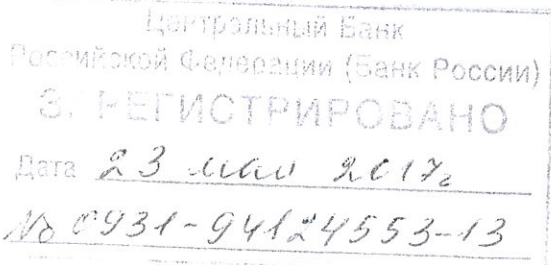 Центральный Банк
Российской Федерации (Банк России)
ЗАРЕГИСТРИРОВАНО
Дата 23 мая 2017г
№ 0931-94124553-13